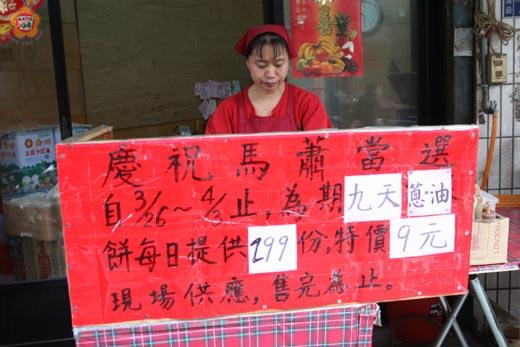 慶祝馬蕭當選
自3/26~4/3止,為期九天蔥油
餅每日提供299份,特價9元
現場供應,售完為止。